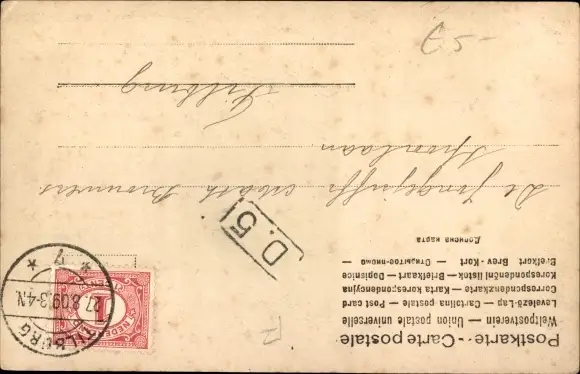 Postkarte - Carte postale
Weltpostverein — Union postale universelle
Levelező-Lap — Cartolina postale — Post card
Correspondenzkarte — Karta korespondencyjna
Korespondenční lístek — Briefkaart — Dopisnice
Brefkort — Brev-Kort — Открытое письмо —
Дописна карта
D.5
De Jongejuffr
Brouwers
Spoorlaan
Tilburg
TILBURG
27.8.09 3-4N
7
1
NEDERLAND
€ 5-